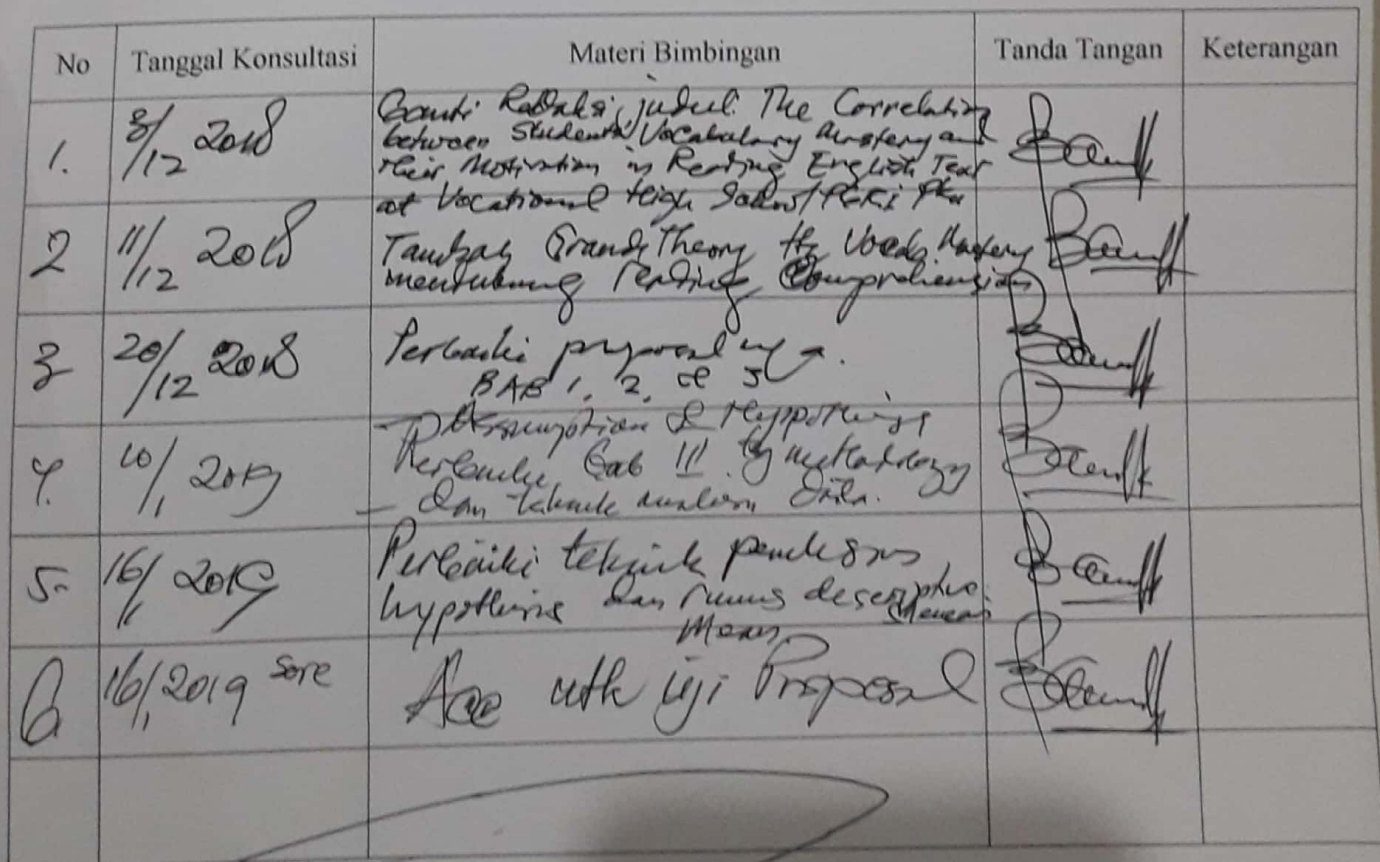 No Tanggal Konsultasi Materi Bimbingan Tanda Tangan Keterangan
1. 8/12 2018 Ganti Redaksi judul: The Correlation
between Students' Vocabulary Mastery and
their Motivation in Reading English Text
at Vocational High School
2 11/12 2018 Grand Theory ttg Vocab. Mastery
mendukung reading Comprehension
3 20/12 2018 Perbaiki proposal
BAB 1, 2, 3
4. 10/1 2019 - Assumption & Hyppothesis
Perbaiki bab III ttg methodology
- dan teknik analisis data.
5. 16/1 2019 Perbaiki teknik
hypothesis dan rumus descriptive
Mean
6 16/1 2019 sore Acc utk uji Proposal